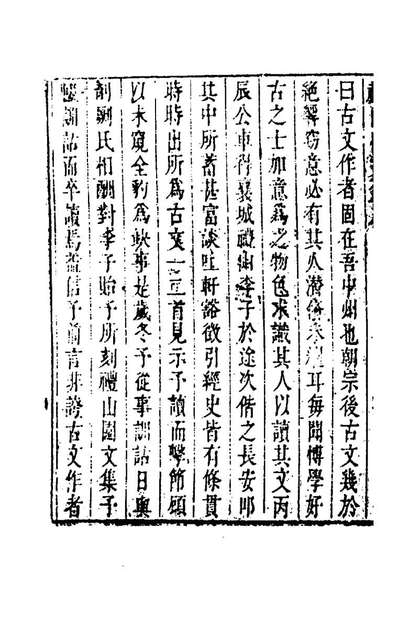 曰古文作者固在吾中州也朝宗後古文幾於
絕響窃意必有其人潛伏未彰耳每聞博學好
古之士如意爲之物色求識其人以讀其文丙
辰公車得襄城禮山李子於途次偕之長安邸
其中所蓄甚富談吐軒豁徵引經史皆有條貫
時時出所爲古文一二首見示予讀而擊節顧
以未窺全豹爲缺事是歲冬予從事調詁日與
剞劂氏相酬對李子貽予所刻禮山園文集予
詁而卒讀焉益信予前言非證古文作者